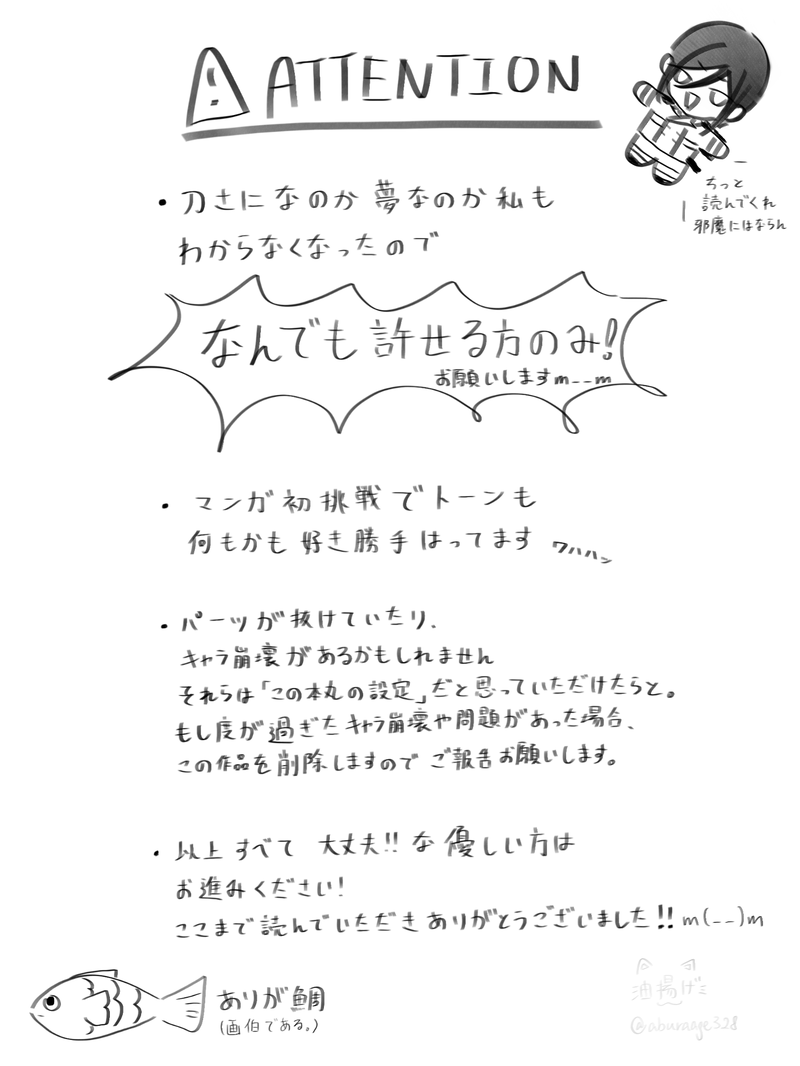 ⚠ ATTENTION
ちっと
読んでくれ
邪魔にはならん
・刀さになのか夢なのか私も
わからなくなったので
なんでも許せる方のみ!
お願いしますm--m
・マンガ初挑戦でトーンも
何もかも好き勝手はってます ワハハハ
・パーツが抜けていたり、
キャラ崩壊があるかもしれません
それらは「この本丸の設定」だと思っていただけたらと。
もし度が過ぎたキャラ崩壊や問題があった場合、
この作品を削除しますのでご報告お願いします。
・以上すべて 大丈夫!!な優しい方は
お進みください!
ここまで読んでいただきありがとうございました!!m(--)m
ありが鯛
(画伯である。)
油揚げ
@aburaage328